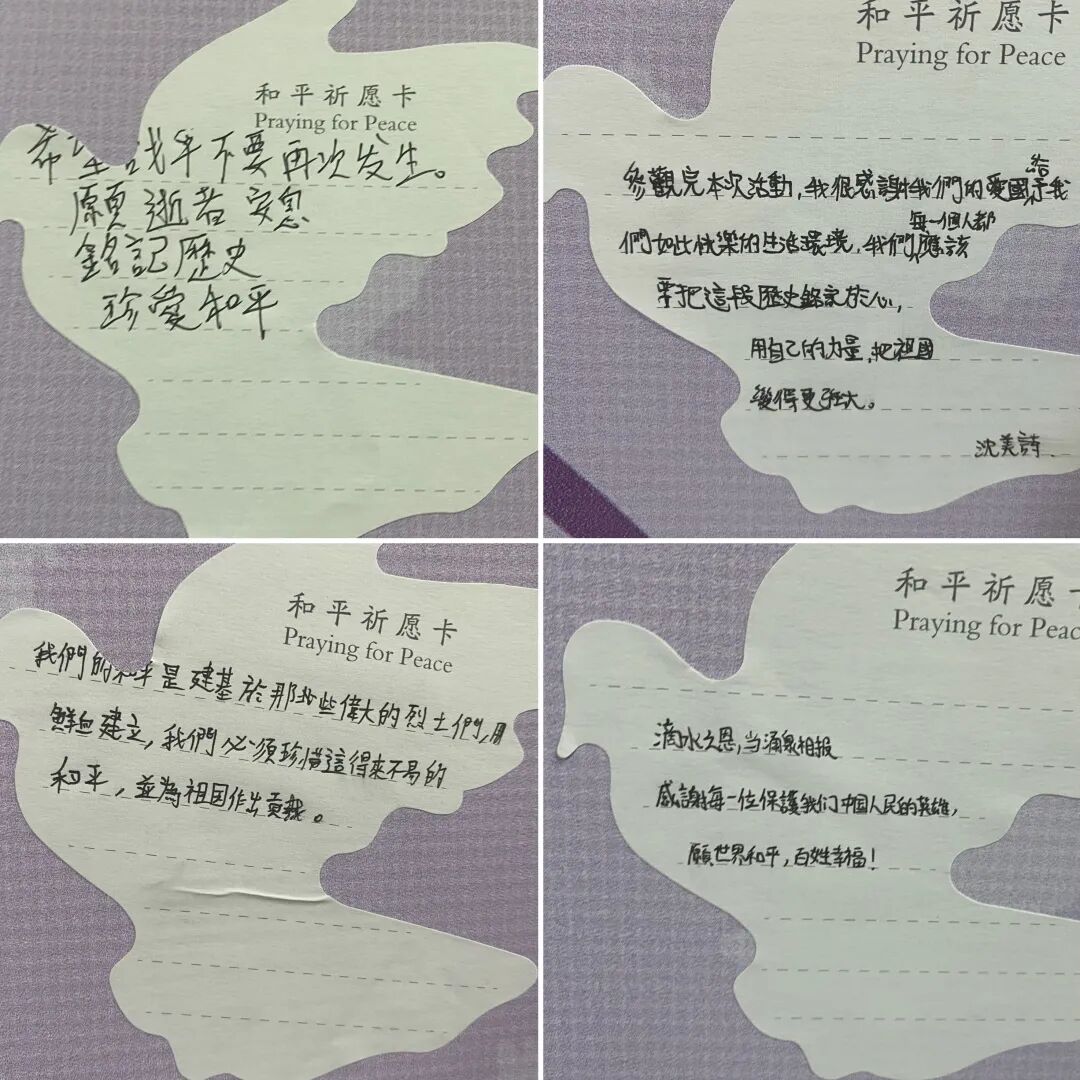 和平祈愿卡
Praying for Peace
希望战争不要再次发生。
願逝者安息
銘記歷史
珍愛和平
和平祈愿卡
Praying for Peace
參觀完本次活動,我很感謝我們的愛國給予我
們如此快樂的生活環境,我們每一個人都應該
要把這段歷史銘記於心,
用自己的力量,把祖國
變得更強大。
沈美詩
和平祈愿卡
Praying for Peace
我們的和平是建基於那些偉大的烈士們,用
鮮血建立,我們必須珍惜這得來不易的
和平,並為祖国作出貢献。
和平祈愿卡
Praying for Peace
滴水之恩,当涌泉相报
感謝每一位保護我们中國人民的英雄,
願世界和平,百姓幸福!